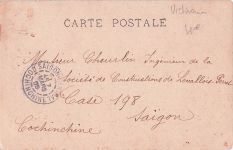 CARTE POSTALE
Monsieur Ingénieur de la
Société de Constructions de Levallois-Perret
Case 198
Saigon
Cochinchine